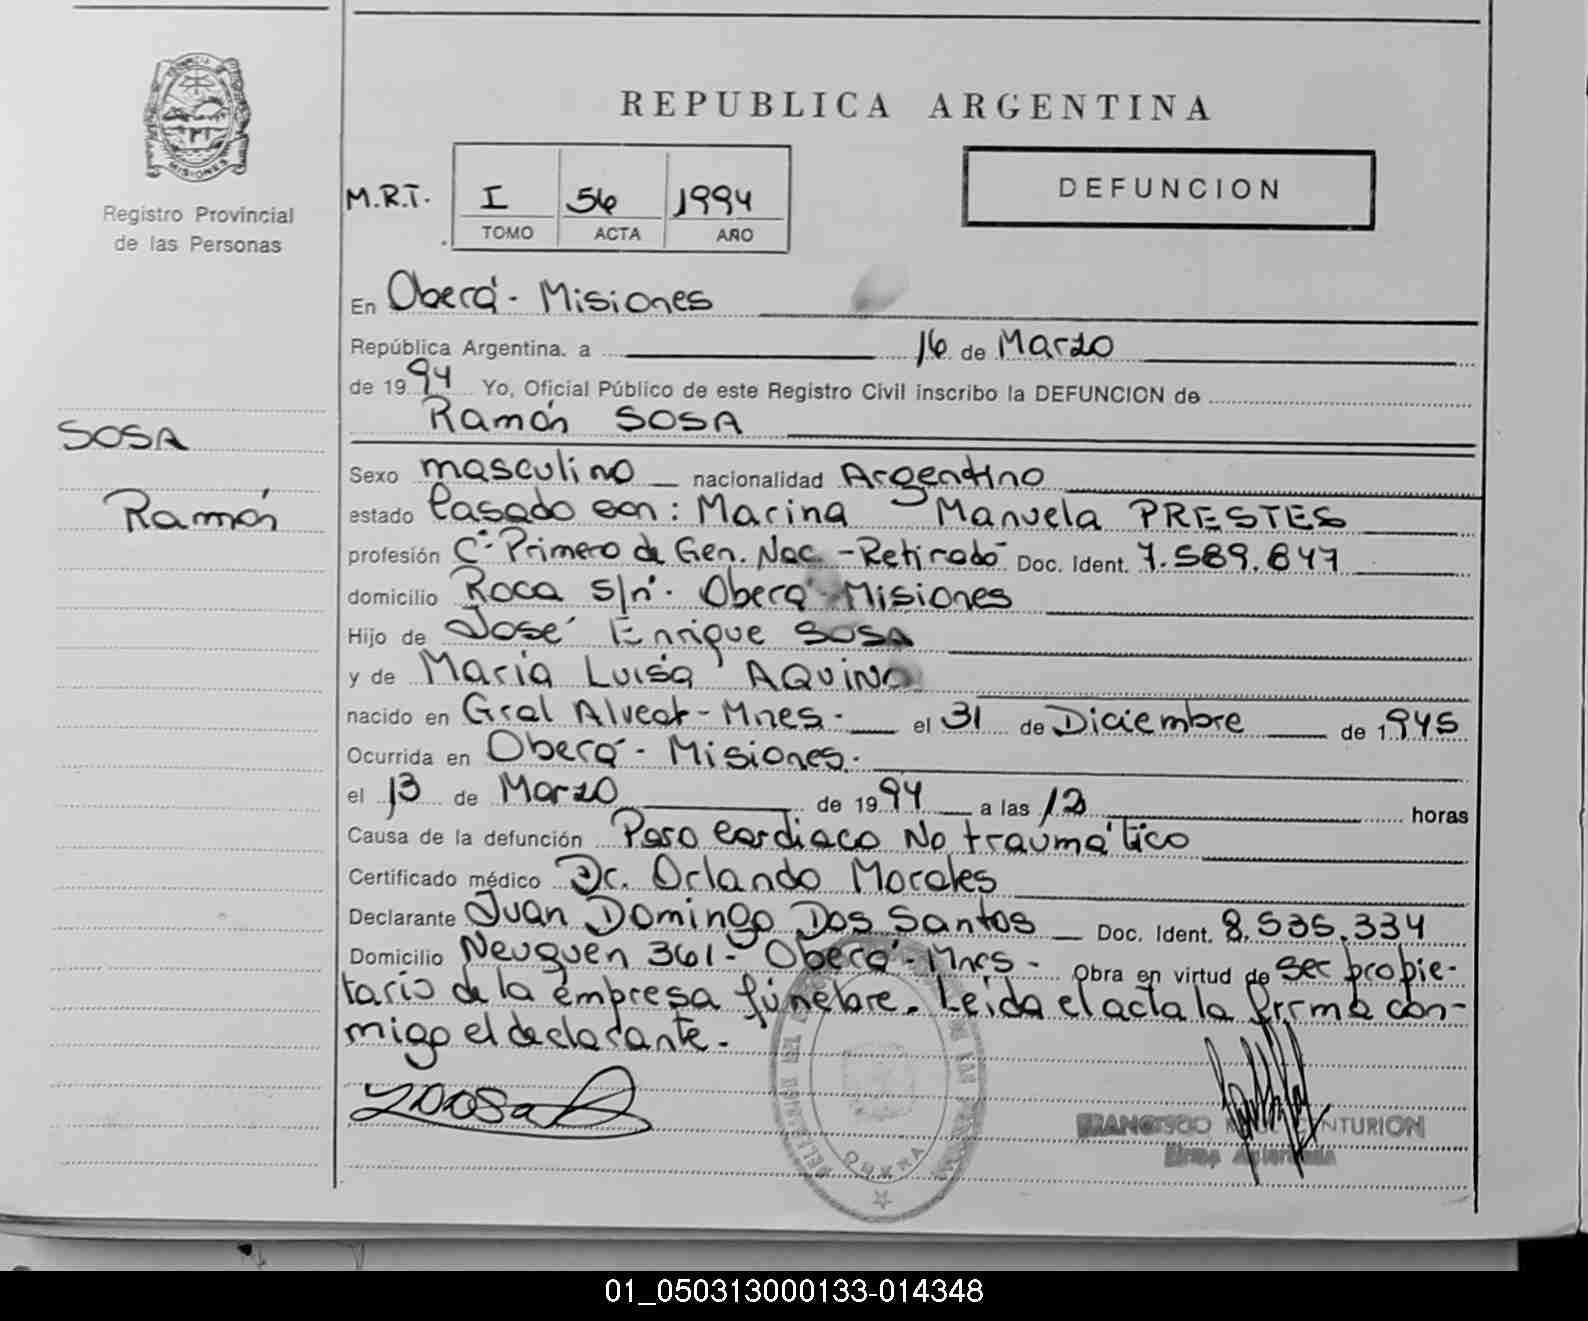 REPUBLICA ARGENTINA
MISIONES
Registro Provincial
de las Personas
M.R.T. I 56 1994
TOMO ACTA AÑO
DEFUNCION
En Oberá - Misiones
República Argentina. a 16 de Marzo
de 1994 Yo, Oficial Público de este Registro Civil inscribo la DEFUNCION de
Ramón SOSA
SOSA
Ramón
Sexo masculino nacionalidad Argentino
estado Casado con: Marina Manuela PRESTES
profesión Cº Primero de Gen. Nac. - Retirado - Doc. Ident. 7.589.847
domicilio Roca s/nº. Oberá - Misiones
Hijo de José Enrique SOSA
y de María Luisa AQUINO
nacido en Gral Alvear - Mnes. el 31 de Diciembre de 1945
Ocurrida en Oberá - Misiones.
el 13 de Marzo de 1994 a las 12 horas
Causa de la defunción Paro cardiaco No traumático
Certificado médico Dr. Orlando Morales
Declarante Juan Domingo Dos Santos Doc. Ident. 8.535.334
Domicilio Neuquen 361 - Oberá - Mnes - Obra en virtud de ser propie-
tario de la empresa fúnebre. Leida el acta la firma con-
migo el declarante.
FRANCISCO CENTURION
OBERA
01_050313000133-014348